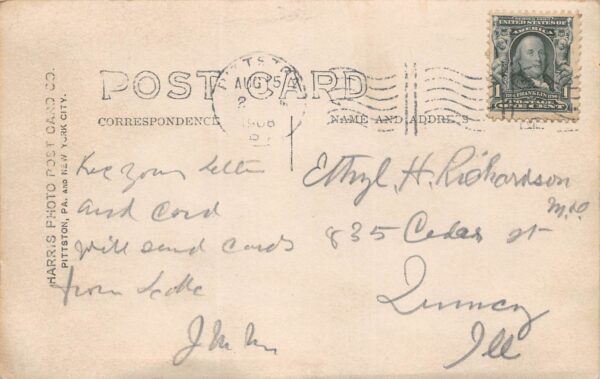 POST CARD
CORRESPONDENCE
NAME AND ADDRESS
HARRIS PHOTO POST CARD CO.
PITTSTON, PA. AND NEW YORK CITY.
PITTSTON
AUG 5
2
1908
SERIES 1902
UNITED STATES OF
AMERICA
1 1
FRANKLIN
POSTAGE
ONE CENT
Rec your letter
and card
will send cards
from
Ethyl. H. Richardson
835 Cedar st
Quincy
Ill